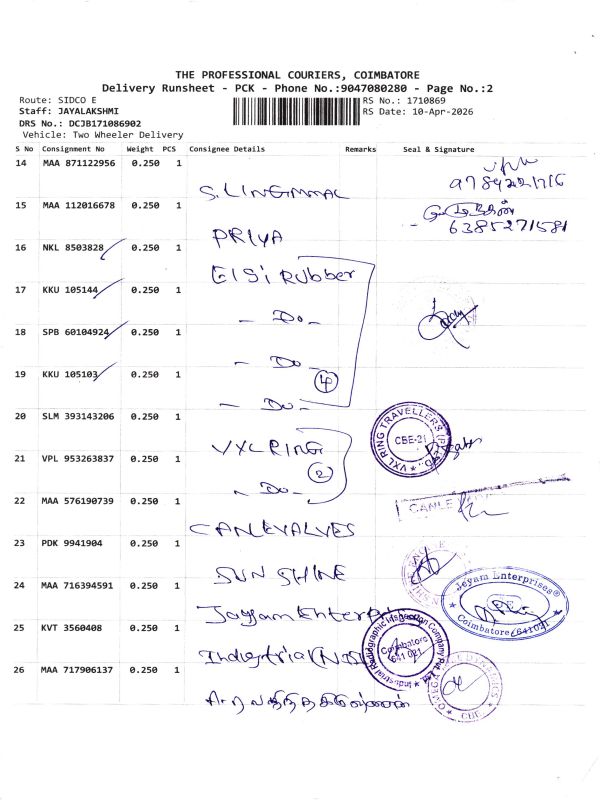 THE PROFESSIONAL COURIERS, COIMBATORE
Delivery Runsheet - PCK - Phone No.:9047080280 - Page No.:2
Route: SIDCO E
RS No.: 1710869
Staff: JAYALAKSHMI
RS Date: 10-Apr-2026
DRS No.: DCJB171086902
Vehicle: Two Wheeler Delivery
S No Consignment No Weight PCS Consignee Details Remarks Seal & Signature
14 MAA 871122956 0.250 1
S. LINGAMMAL
15 MAA 112016678 0.250 1
6385271581
PRIYA
16 NKL 8503828 0.250 1
ELSI Rubber
17 KKU 105144 0.250 1
- Do -
18 SPB 60104924 0.250 1
- Do -
19 KKU 105103 0.250 1
4
- Do -
20 SLM 393143206 0.250 1
VXL RING TRAVELLERS (P) LTD
CBE-21
VXL RING
21 VPL 953263837 0.250 1
2
- Do -
22 MAA 576190739 0.250 1
CANLE
CANEVALVES
23 PDK 9941904 0.250 1
SUN SHINE
24 MAA 716394591 0.250 1
Jeyam Enterprises
Coimbatore-641021
Jayam Enterprises
25 KVT 3560408 0.250 1
Industrial Radiographic Inspection Company Pvt. Ltd.
Coimbatore
641 021
Industrial
26 MAA 717906137 0.250 1
OMEGA DYNAMICS
CBE